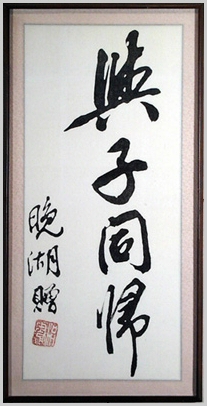 與子同歸
晚湖贈